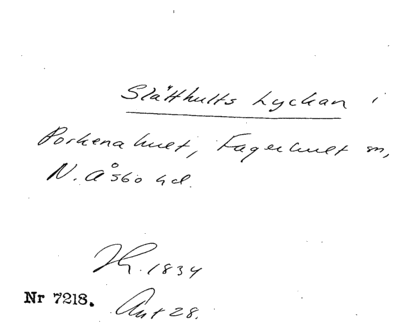 Slätthults Lyckan i
Porkenahult, Fagerhult sn,
N. Åsbo hd.
Jh. 1834
Nr 7218. Ant 28.